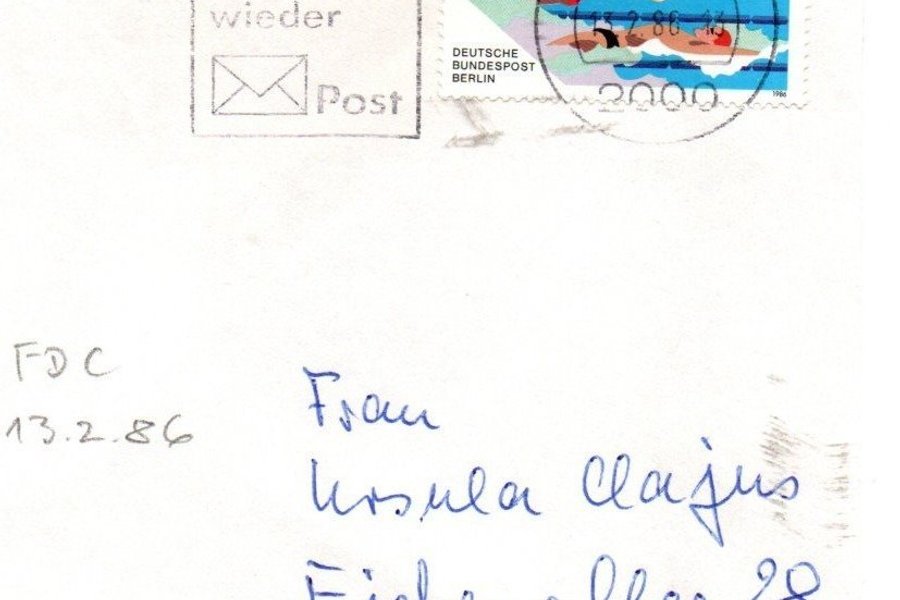 wieder
Post
DEUTSCHE
BUNDESPOST
BERLIN
13.2.86
1986
2000
FDC
13.2.86
Frau
Ursula Clajus
28